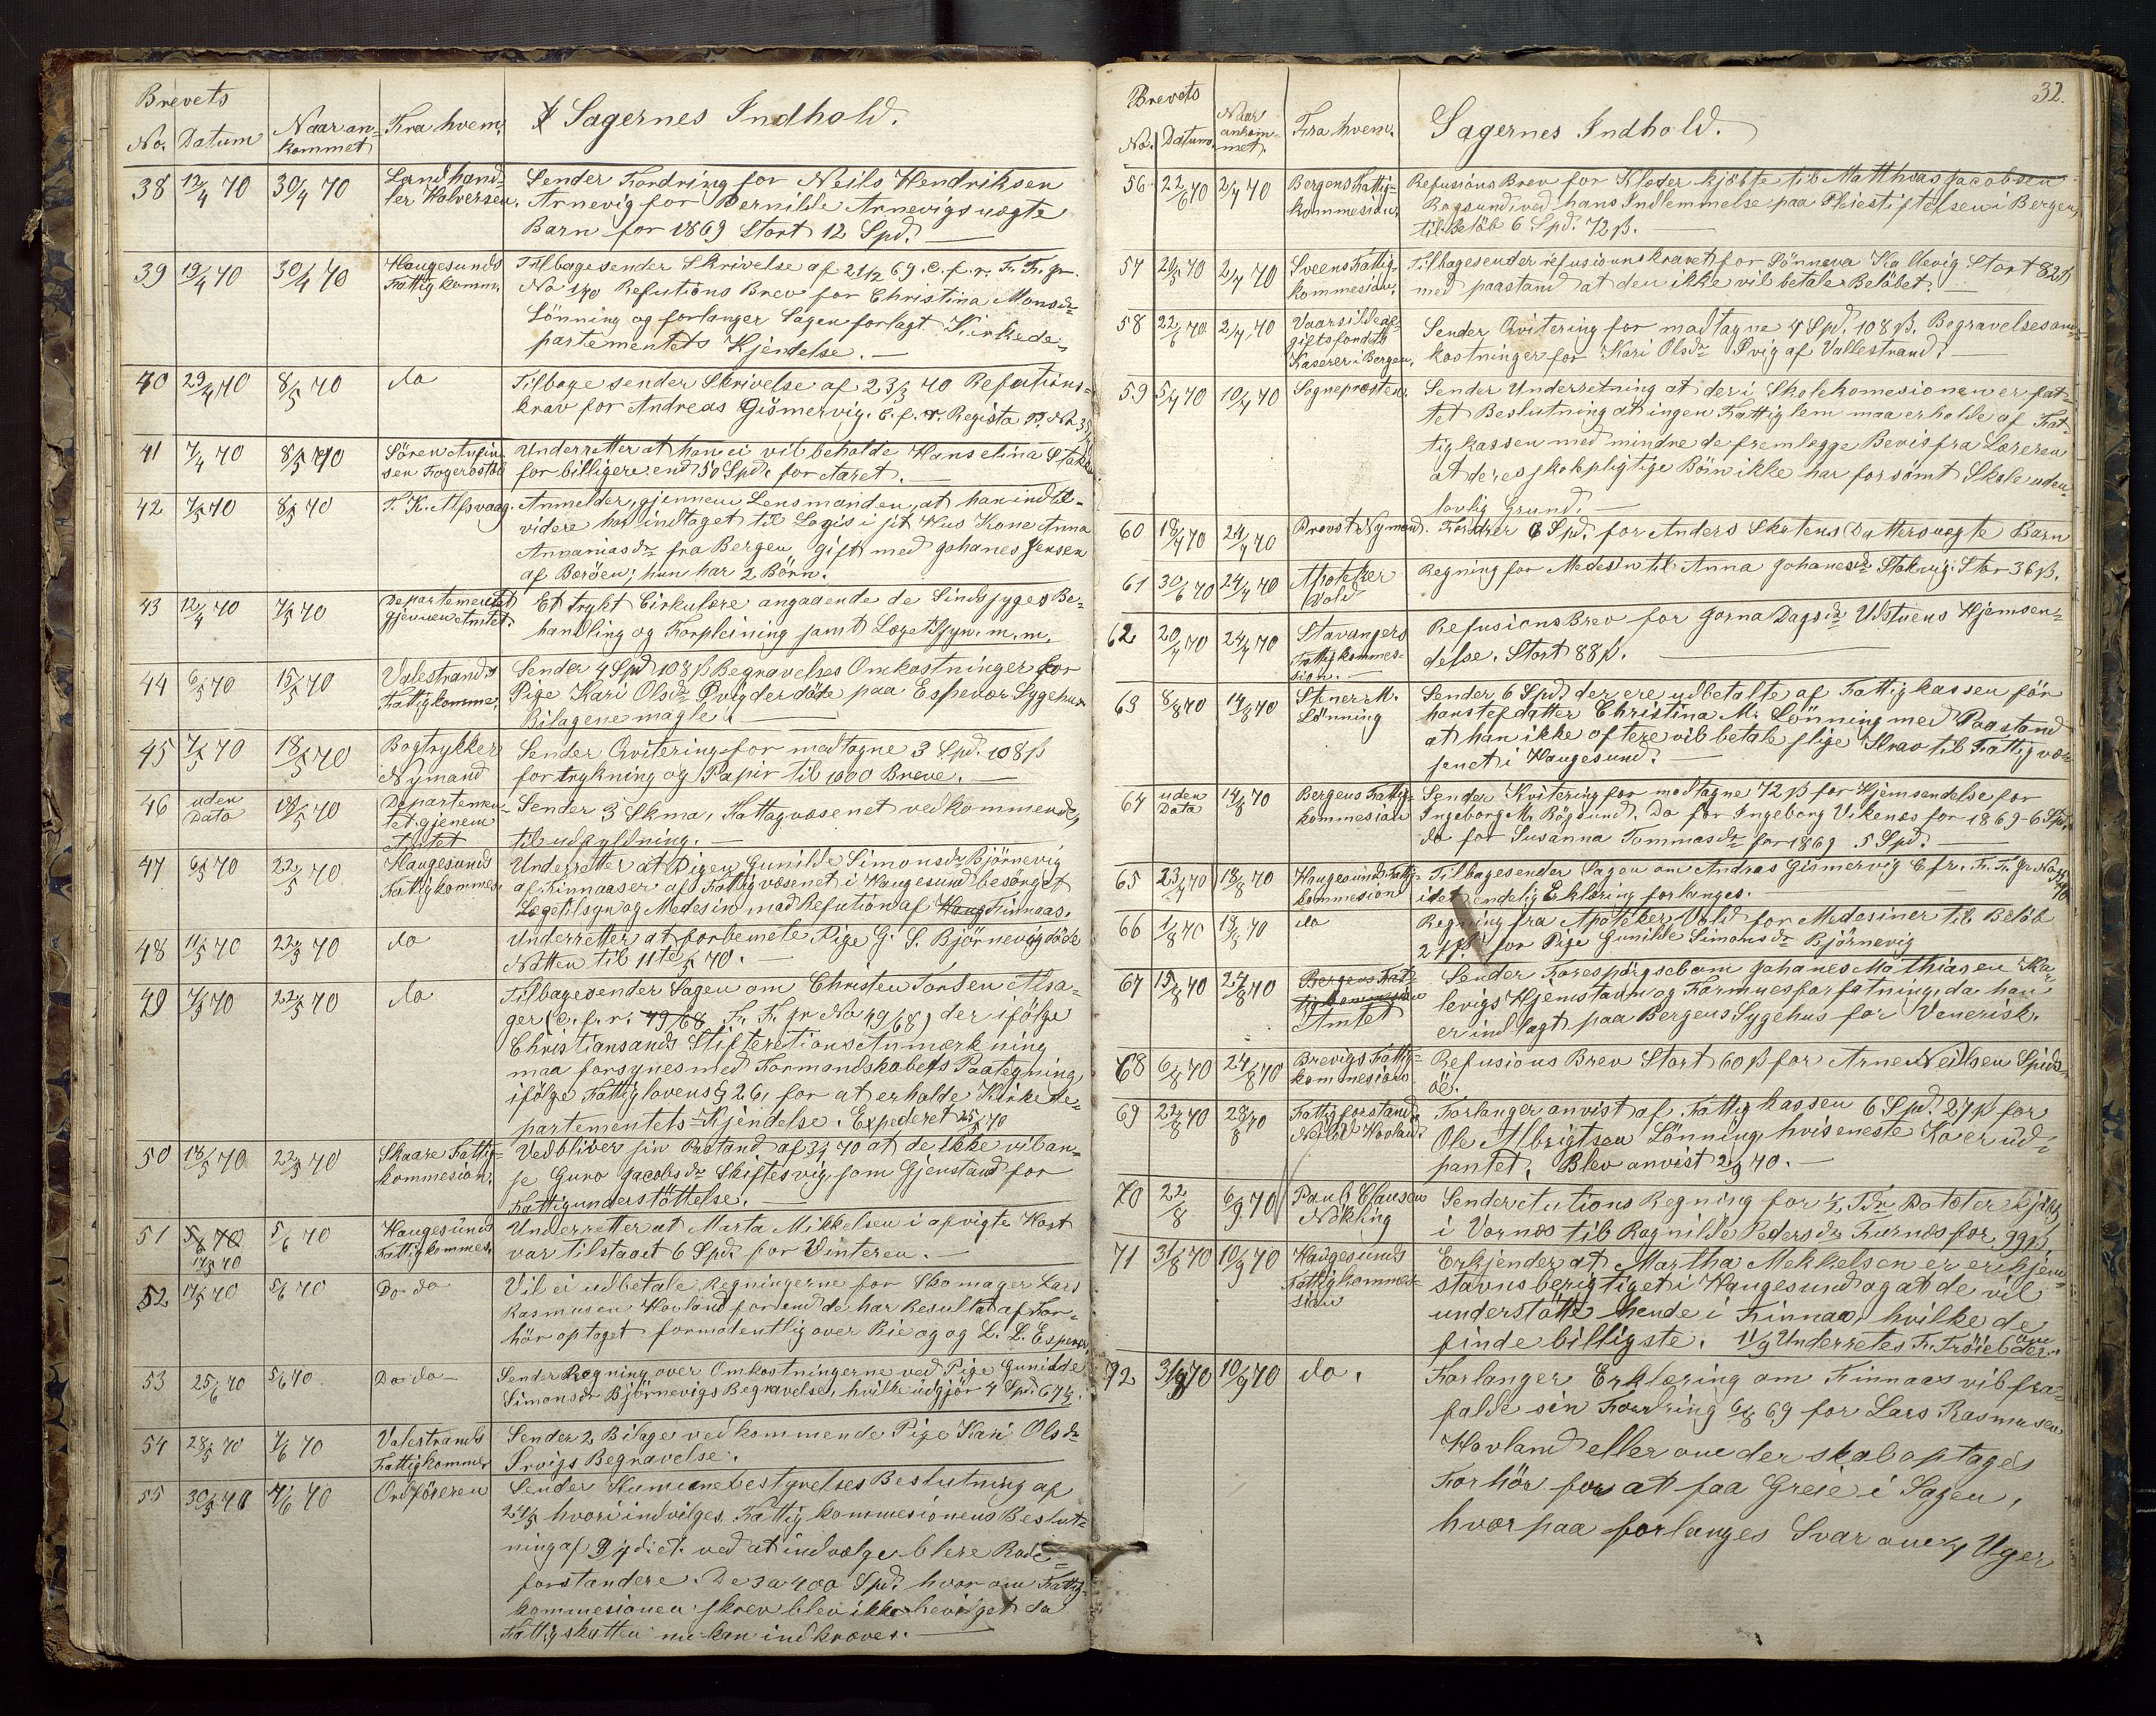 Brevets
No. Datum Naar an-
kommet Fra hvem. Sagernes Indhold.
38 12/4 70 30/4 70 Landhand- Sender Fordring for Neils Hendriksen
ler Halversen. Arnevig for Pernilde Arnevigs uægte
Barn for 1869 Stort 12 Spd.
39 19/4 70 30/4 70 Haugesunds Tilbagesender Skrivelse af 21/12 69. c.f.r. Fr. Fr. pr.
Fattigkomm. No 1/70 Refutions Brev for Christina Monsdr
Lönning og forlanger Sagen forlagt Kirkede-
partementets Kjendelse.
40 29/4 70 8/5 70 do Tilbage sender Skrivelse af 23/3 70 Refutions-
krav for Andreas Gismervig. C.f.r. Regista
41 7/4 70 8/5 70 Sören
for billigere end 50 Spd. for Aaret.
42 7/5 70 8/5 70 T. K. Alfsvaag. Anmelder, gjennem Lensmanden, at han indtil-
videre har indtaget til Logis i sit Hus Kone Anna
Annaniasdr fra Bergen, gift med Johanes Jensen
af Boröen; hun har 2 Börn.
43 12/4 70 7/5 70 Departementet Et trykt Cirkulære angaaende de Sindssyges Be-
gjennem Amtet. handling og Forpleining samt Lægetilsyn. m.m.
44 6/5 70 15/5 70 Valestrands Sender 4 Spd 108 ß Begravelses Omkostninger for
Fattigkomme. Pige Kari OlsdrÖvig der döde paa Espevær Sygehus
Bilagene magle.
45 7/5 70 18/5 70 Bogtrykker Sender Qvitering for modtagne 3 Spd. 108 ß
Nymand for trykning og Papir til 1000 Breve.
46 uden
Dato 18/5 70 Departemen- Sender 3 Skma, Fattagvæsenet vedkommende,
tet gjenem
Amtet til udfyldning.
47 6/5 70 22/5 70 Haugesunds Underretter at Pigen Gunilde Simonsdr Björnevig
Fattigkommes af Finnaaser af Fattigvæsenet i Haugesund besörget
Lægetilsyn og Medesin mod Refution af Haug Finnaas.
48 11/5 70 22/5 70 do Underretter at forbemelte Pige G. S. Björnevig döde
Natten til 11te/5 70.
49 7/5 70 22/5 70 do Tilbagesender Sagen om Christen Torsen Alsa-
ger (c.f.r. 49/68 Fr. F. pr No 49/68) der ifölge
Christiansands Stiftsretions Anmærkning
maa forsynes med Formandskabets Paategning,
ifölge Fattiglovens § 26, for at erholde Kirkede-
partementets Kjendelse. Expederet 25/5 70
50 18/5 70 22/5 70 Skaare Fattig- Vedbliver sin Pastand af 3/4 70 at de ikke vil an-
kommesion. se Guro Jacobsdr Skiftesvig som Gjenstand for
Fattigunderstöttelse.
51 5/6 70
17/5 70 5/6 70 Haugesunds Underretter at Marta Mikkelsen i afvigte Höst
Fattigkommes. var tilstaaet 6 Spd. for Vinteren.
52 17/5 70 5/6 70 Do. do Vil ei udbetale Regningerne for Skomager Lars
Rasmusen Hovland forend de har Resultat af For-
hör optaget formodentlig over Rie og og L. L. Espevær
53 25/6 70 5/6 70 Do. do Sender Regning over Omkostningerne ved Pige Gunilde
Simonsdr Björnevigs Begravelse, hvilke udgjör 4 Spd. 67 ß.
54 28/5 70 7/6 70 Valestrands Sender 2 Bilage vedkommende Pige Kari Olsdr
Fattigkommes Övigs Begravelse.
55 30/5 70 11/6 70 Ordföreren Sender Kumunebestyrelses Beslutning af
24/5 hvori indvilges Fattigkommesionens Beslut-
ning af 9/4 d.et. ved at indvælge blere Rode-
forstandere. De 3 a 400 Spd. hvorom Fattig-
kommesionen skrev blev ikke beviget da
Fattigskatten nu kan indkræves.
32.
Brevets
No. Datum. Naar
ankom-
met. Fra hvem. Sagernes Indhold.
56 22/6 70 2/7 70 Bergens Fattig- Refusions Brev for Klæder kjöbte til Matthias Jacobsen
kommesion Rogsund ved hans Indlemmelse paa Pleiestiftelsen i Bergen,
til belöb 6 Spd. 72 ß.
57 20/5 70 2/7 70 Sveens Fattig- Tilbagesender refusionskravet for Sönneva Kallevig Stort 82 ß
kommesion. med paastand at den ikke vil betale Belöbet.
58 22/6 70 2/7 70 Vaarsildeaf-
giftsfondets Sender Qvitering for modtagne 4 Spd. 108 ß. Begravelsesom-
Kaserer i Bergen. kostninger for Kari Olsdr Övig af Vallestrand.
59 5/7 70 10/7 70 Sognepresten. Sender Underretning at der i Skolekomesionen er fat-
tet Beslutning at ingen Fattiglem maa erholde af Fat-
tigkassen med mindre de fremlægge Bevis fra Læreren
at deres skolepligtige Börn ikke har forsömt Skole uden
lovlig Grund.
60 18/7 70 24/7 70 Provst Nymand. Fordrer 6 Spd. for Anders Skutens Datters uægte Barn
61 30/6 70 24/7 70 Apoteker
Vold Regning for Medesin til Anna Johanesdr Stokvig. Stor 36 ß.
62 20/7 70 24/7 70 Stavangers Refusions Brev for Jorna Dagsdr Udstuens Hjemsen-
Fattigkommes-
sion. delse. Stort 88 ß.
63 8/8 70 14/8 70 Stener M. Sender 6 Spd. der ere udbetalte af Fattigkassen för
Lönning hans tefdatter Christina M. Lönning med Paastand
at han ikke oftere vil betale slige Krav til Fattigvæ-
senet i Haugesund.
64 uden
Data 14/8 70 Bergens Fattig- Sender Kvitering for modtagne 72 ß for Hjemsendelse for
kommesion Ingeborg M. Rögsund. Do for Ingeborg Vikenæs for 1869 - 6 Spd.
do for Susanna Tommasdr for 1869 5 Spd.
65 23/7 70 18/8 70 Haugesunds Fattig- Tilbagesender Sagen om Andras Gismervig C.fr. Fr. Fr. Pr. No
kommesion idet endelig Eklæring forlanges.
66 1/8 70 18/8 70 do Regning fra Apoteker Vold for Medesiner til Belöb
24 ß for Pige Gunilde Simonsdr Björnevig
67 15/8 70 24/8 70 Bergens Fat- Sender Forespörgsel om Johanes Mathiasen Ka-
tigkommesion
Amtet levigs Hjemstavn og Formuesforfatning, da han
er indlagt paa Bergens Sygehus for Venerisk.
68 6/8 70 24/8 70 Brevigs Fattig- Refusions Brev Stort 60 ß for Arne Neilsen Spids-
kommesion öe.
69 22/8 70 28/8 70 Fattigforstand. Forlanger anvist af Fattigkassen 6 Spd. 27 ß for
Neils Hovland. Ole Albrigtsen Lönning, hvis eneste Ko er ud-
pantet. Blev anvist 2/9 70.
70 22/8 6/9 70 Paul Clausen Sender Autions Regning for ½ Tdr Poteter kjöbt
Nökling i Vornes til Ragnilde Pedersdr Furnes for 99 ß
71 31/8 70 10/9 70 Haugesunds Erkjender at Martha Mekkelsen er erhjem-
Fattigkommes-
sion stavnsberigtiget i Haugesund og at de vil
understötte hende i Finnaas, hvilke de
finde billigste. 11/9 Underretes Fr. Fröieb
72 31/8 70 10/9 70 do. Forlanger Erklæring om Finnaas vil fra-
falde sin Fordring 6/8 69 for Lars Rasmusen
Hovland eller om der skal optages
Forhör for at faa Greie i Sagen,
hvorpaa forlanges Svar om 4 Uger